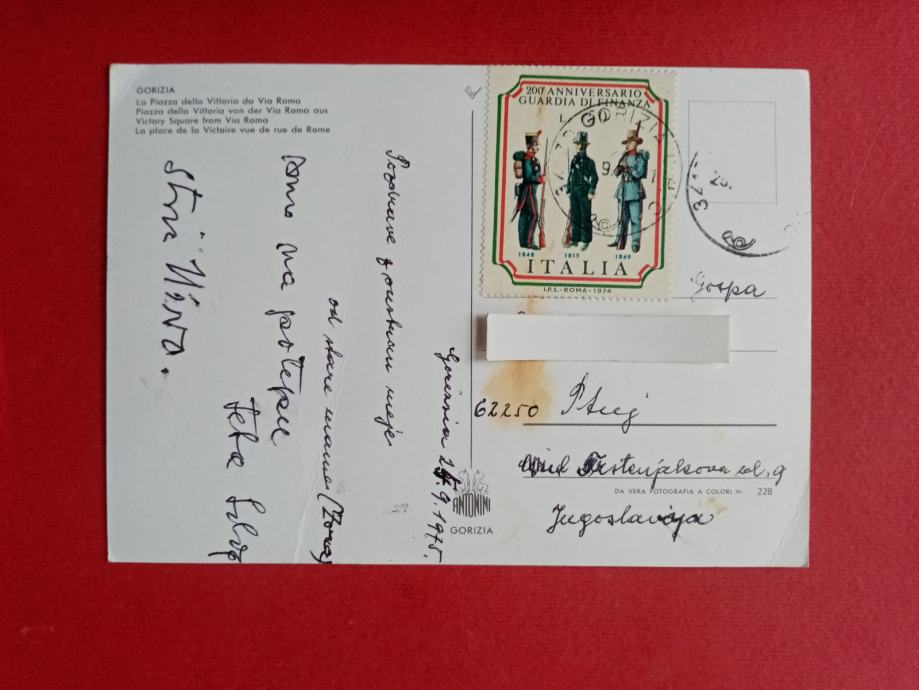 GORIZIA
La Piazza della Vittoria da Via Roma
Piazza della Vittoria von der Via Roma aus
Victory Square from Via Roma
La place de la Victoire vue de rue de Rome
200° ANNIVERSARIO
GUARDIA DI FINANZA
L.
1848 1815 1849
ITALIA
I.P.S.-ROMA-1974
GORIZIA
Gorizia 24.9.1975.
Pozdrave z meje
od stare mame
smo na potepu
Teta
stric
Gospa
62250 Ptuj
ul. 9
Jugoslavija
ANTONINI
GORIZIA
DA VERA FOTOGRAFIA A COLORI Nr. 228